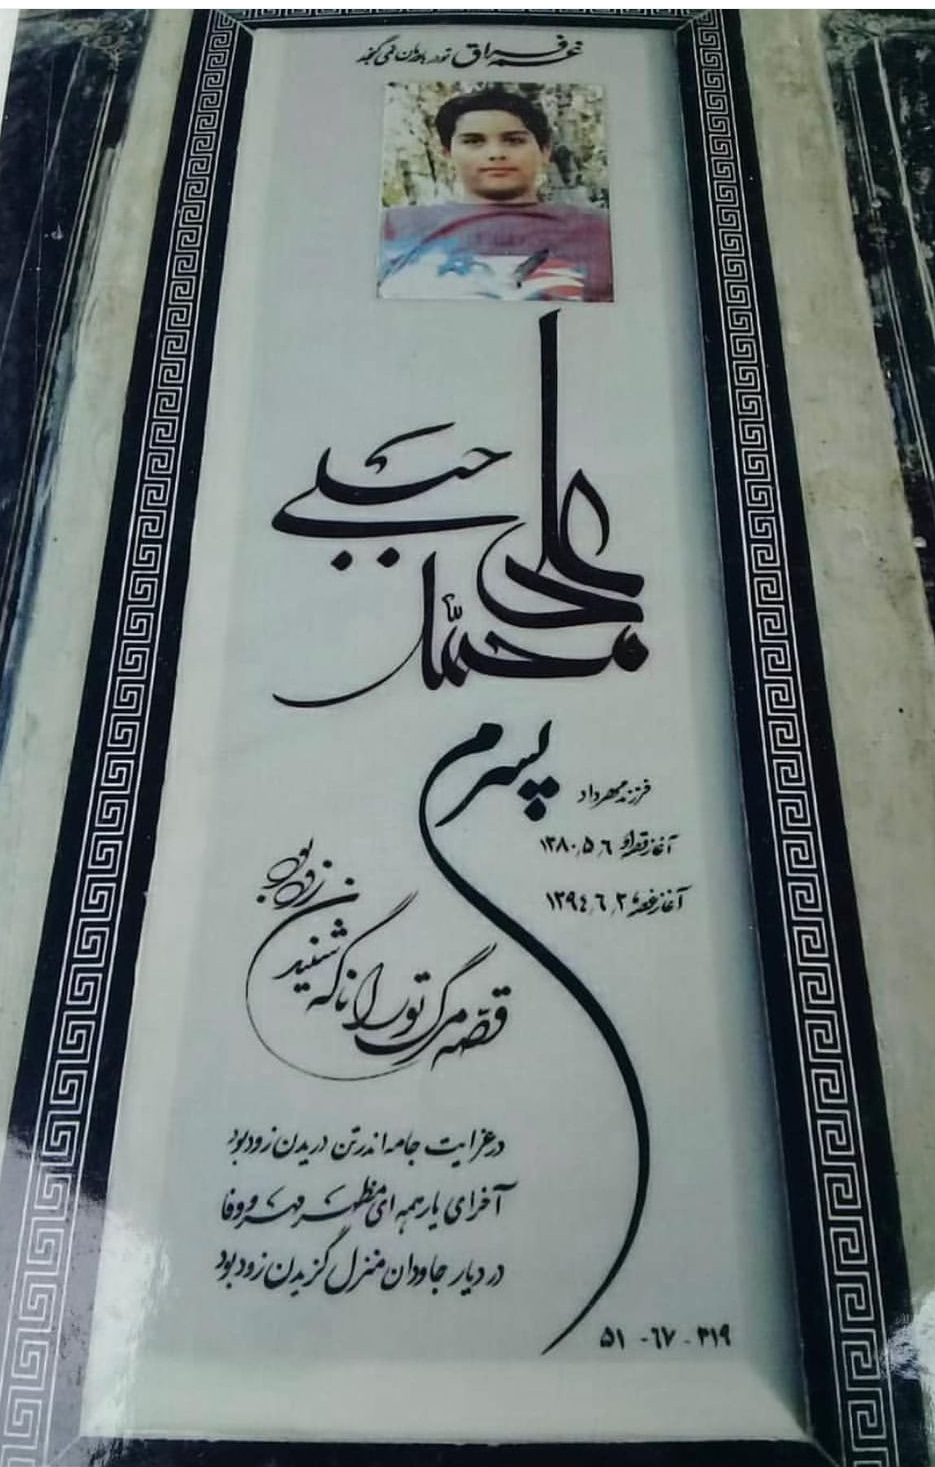 غم فراق تو در باورمان نمی گنجد
محمد علی
حبیبی
پسرم
فرزند مهرداد
آغاز قصه او ۱۳۸۰٫۵٫۶
آغاز غصه ۱۳۹٤٫۶٫۲
قصّه مرگ تو را ناگه شنیدن زود بود
در عزایت جامه اندر تن دریدن زود بود
آخر ای یار همه ای مظهر مهر و وفا
در دیار جاودان منزل گزیدن زود بود
۵۱ - ۶۷ - ۳۱۹